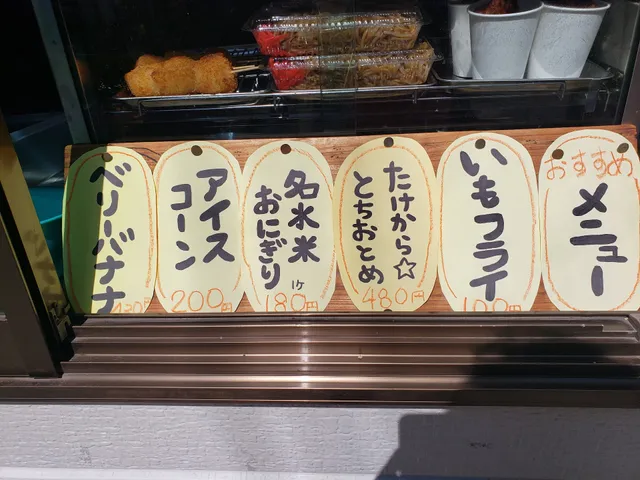 おすすめ
メニュー
いもフライ
100円
たけから☆
とちおとめ
480円
名水米
おにぎり
1ケ
180円
アイス
コーン
200円
ベリーバナナ